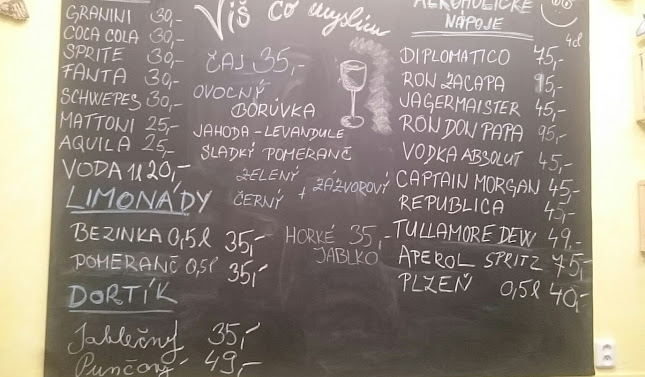 GRANINI 30,-
COCA COLA 30,-
SPRITE 30,-
FANTA 30,-
SCHWEPES 30,-
MATTONI 25,-
AQUILA 25,-
VODA 1l 20,-
LIMONÁDY
BEZINKA 0,5l 35,-
POMERANČ 0,5l 35,-
DORTÍK
Jablečný 35,-
Punčový 49,-
Víš co myslím
ČAJ 35,-
OVOCNÝ
BORŮVKA
JAHODA - LEVANDULE
SLADKÝ POMERANČ
ZELENÝ
ČERNÝ + ZÁZVOROVÝ
HORKÉ 35,-
JABLKO
ALKOHOLICKÉ
NÁPOJE
4cl
DIPLOMATICO 75,-
RON ZACAPA 95,-
JAGERMAISTER 45,-
RON DON PAPA 95,-
VODKA ABSOLUT 45,-
CAPTAIN MORGAN 45,-
REPUBLICA 45,-
TULLAMORE DEW 49,-
APEROL SPRITZ 75,-
PLZEŇ 0,5l 40,-